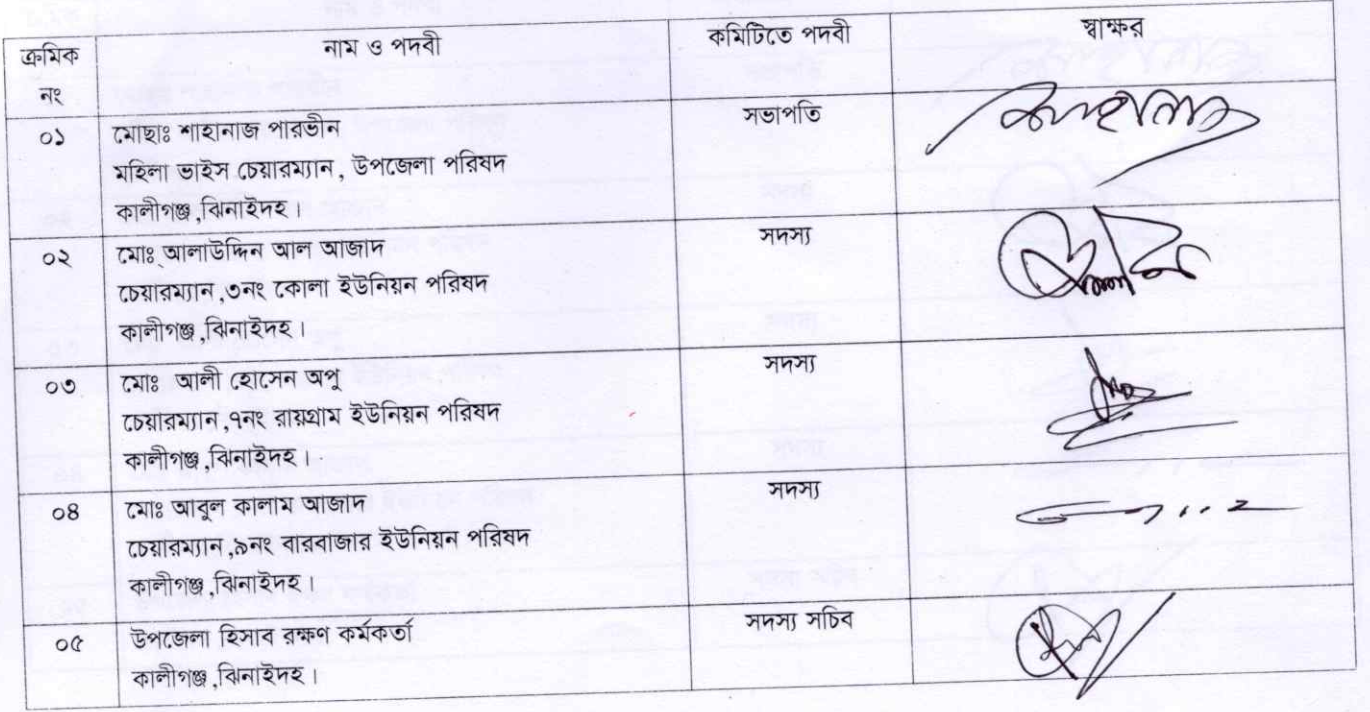 ক্রমিক নাম ও পদবী কমিটিতে পদবী স্বাক্ষর
নং
০১ মোছাঃ শাহানাজ পারভীন সভাপতি
মহিলা ভাইস চেয়ারম্যান, উপজেলা পরিষদ
কালীগঞ্জ,ঝিনাইদহ।
০২ মোঃ আলাউদ্দিন আল আজাদ সদস্য
চেয়ারম্যান,৩নং কোলা ইউনিয়ন পরিষদ
কালীগঞ্জ,ঝিনাইদহ।
০৩ মোঃ আলী হোসেন অপু সদস্য
চেয়ারম্যান,৭নং রায়গ্রাম ইউনিয়ন পরিষদ
কালীগঞ্জ,ঝিনাইদহ।
০৪ মোঃ আবুল কালাম আজাদ সদস্য
চেয়ারম্যান,৯নং বারবাজার ইউনিয়ন পরিষদ
কালীগঞ্জ,ঝিনাইদহ।
০৫ উপজেলা হিসাব রক্ষণ কর্মকর্তা সদস্য সচিব
কালীগঞ্জ,ঝিনাইদহ।